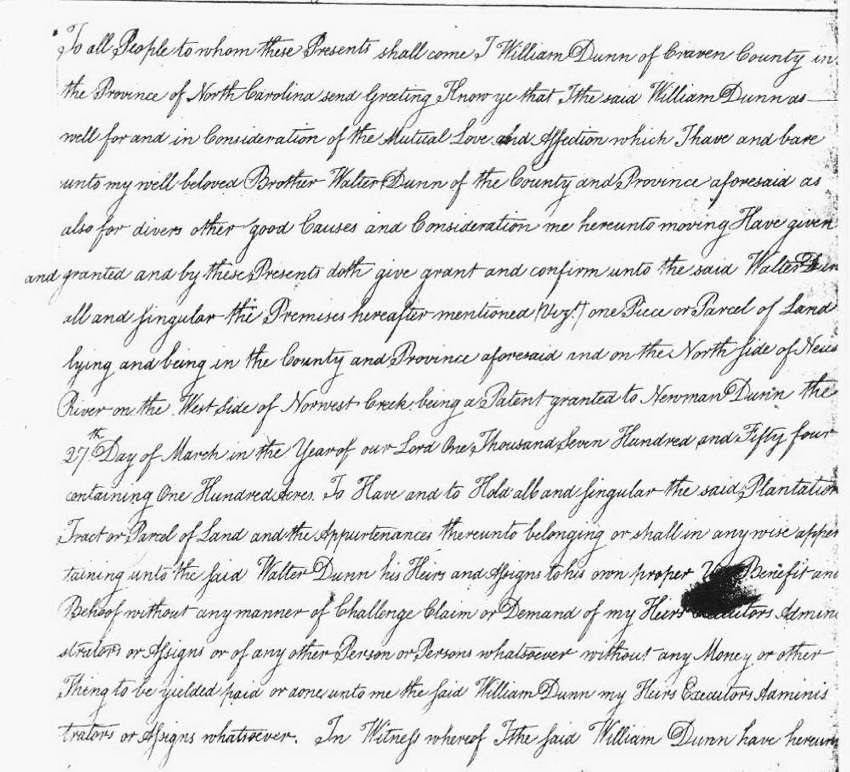 To all People to whom these Presents shall come I William Dunn of Craven County in
the Province of North Carolina send Greeting Know ye that I the said William Dunn as
well for and in Consideration of the Mutual Love and Affection which I have and bare
unto my well beloved Brother Walter Dunn of the County and Province aforesaid as
also for divers other good Causes and Consideration me hereunto moving Have given
and granted and by these Presents doth give grant and confirm unto the said Walter Dun
all and singular the Premises hereafter mentioned (Vizt) one Piece or Parcel of Land
lying and being in the County and Province aforesaid and on the North side of Neus
River on the West side of Norwest Creek being a Patent granted to Newman Dunn the
27th Day of March in the Year of our Lord One Thousand Seven Hundred and Fifty four
containing One Hundred Acres. To Have and to Hold all and singular the said Plantation
Tract or Parcel of Land and the Appurtenances thereunto belonging or shall in any wise apper
taining unto the said Walter Dunn his Heirs and Assigns to his own proper Benefit and
Behoof without any manner of Challenge Claim or Demand of my Heirs Executors Admini
strators or Assigns or of any other Person or Persons whatsoever without any Money or other
Thing to be yielded paid or done unto me the said William Dunn my Heirs Executors Adminis
trators or Assigns whatsoever. In Witness whereof I the said William Dunn have hereun